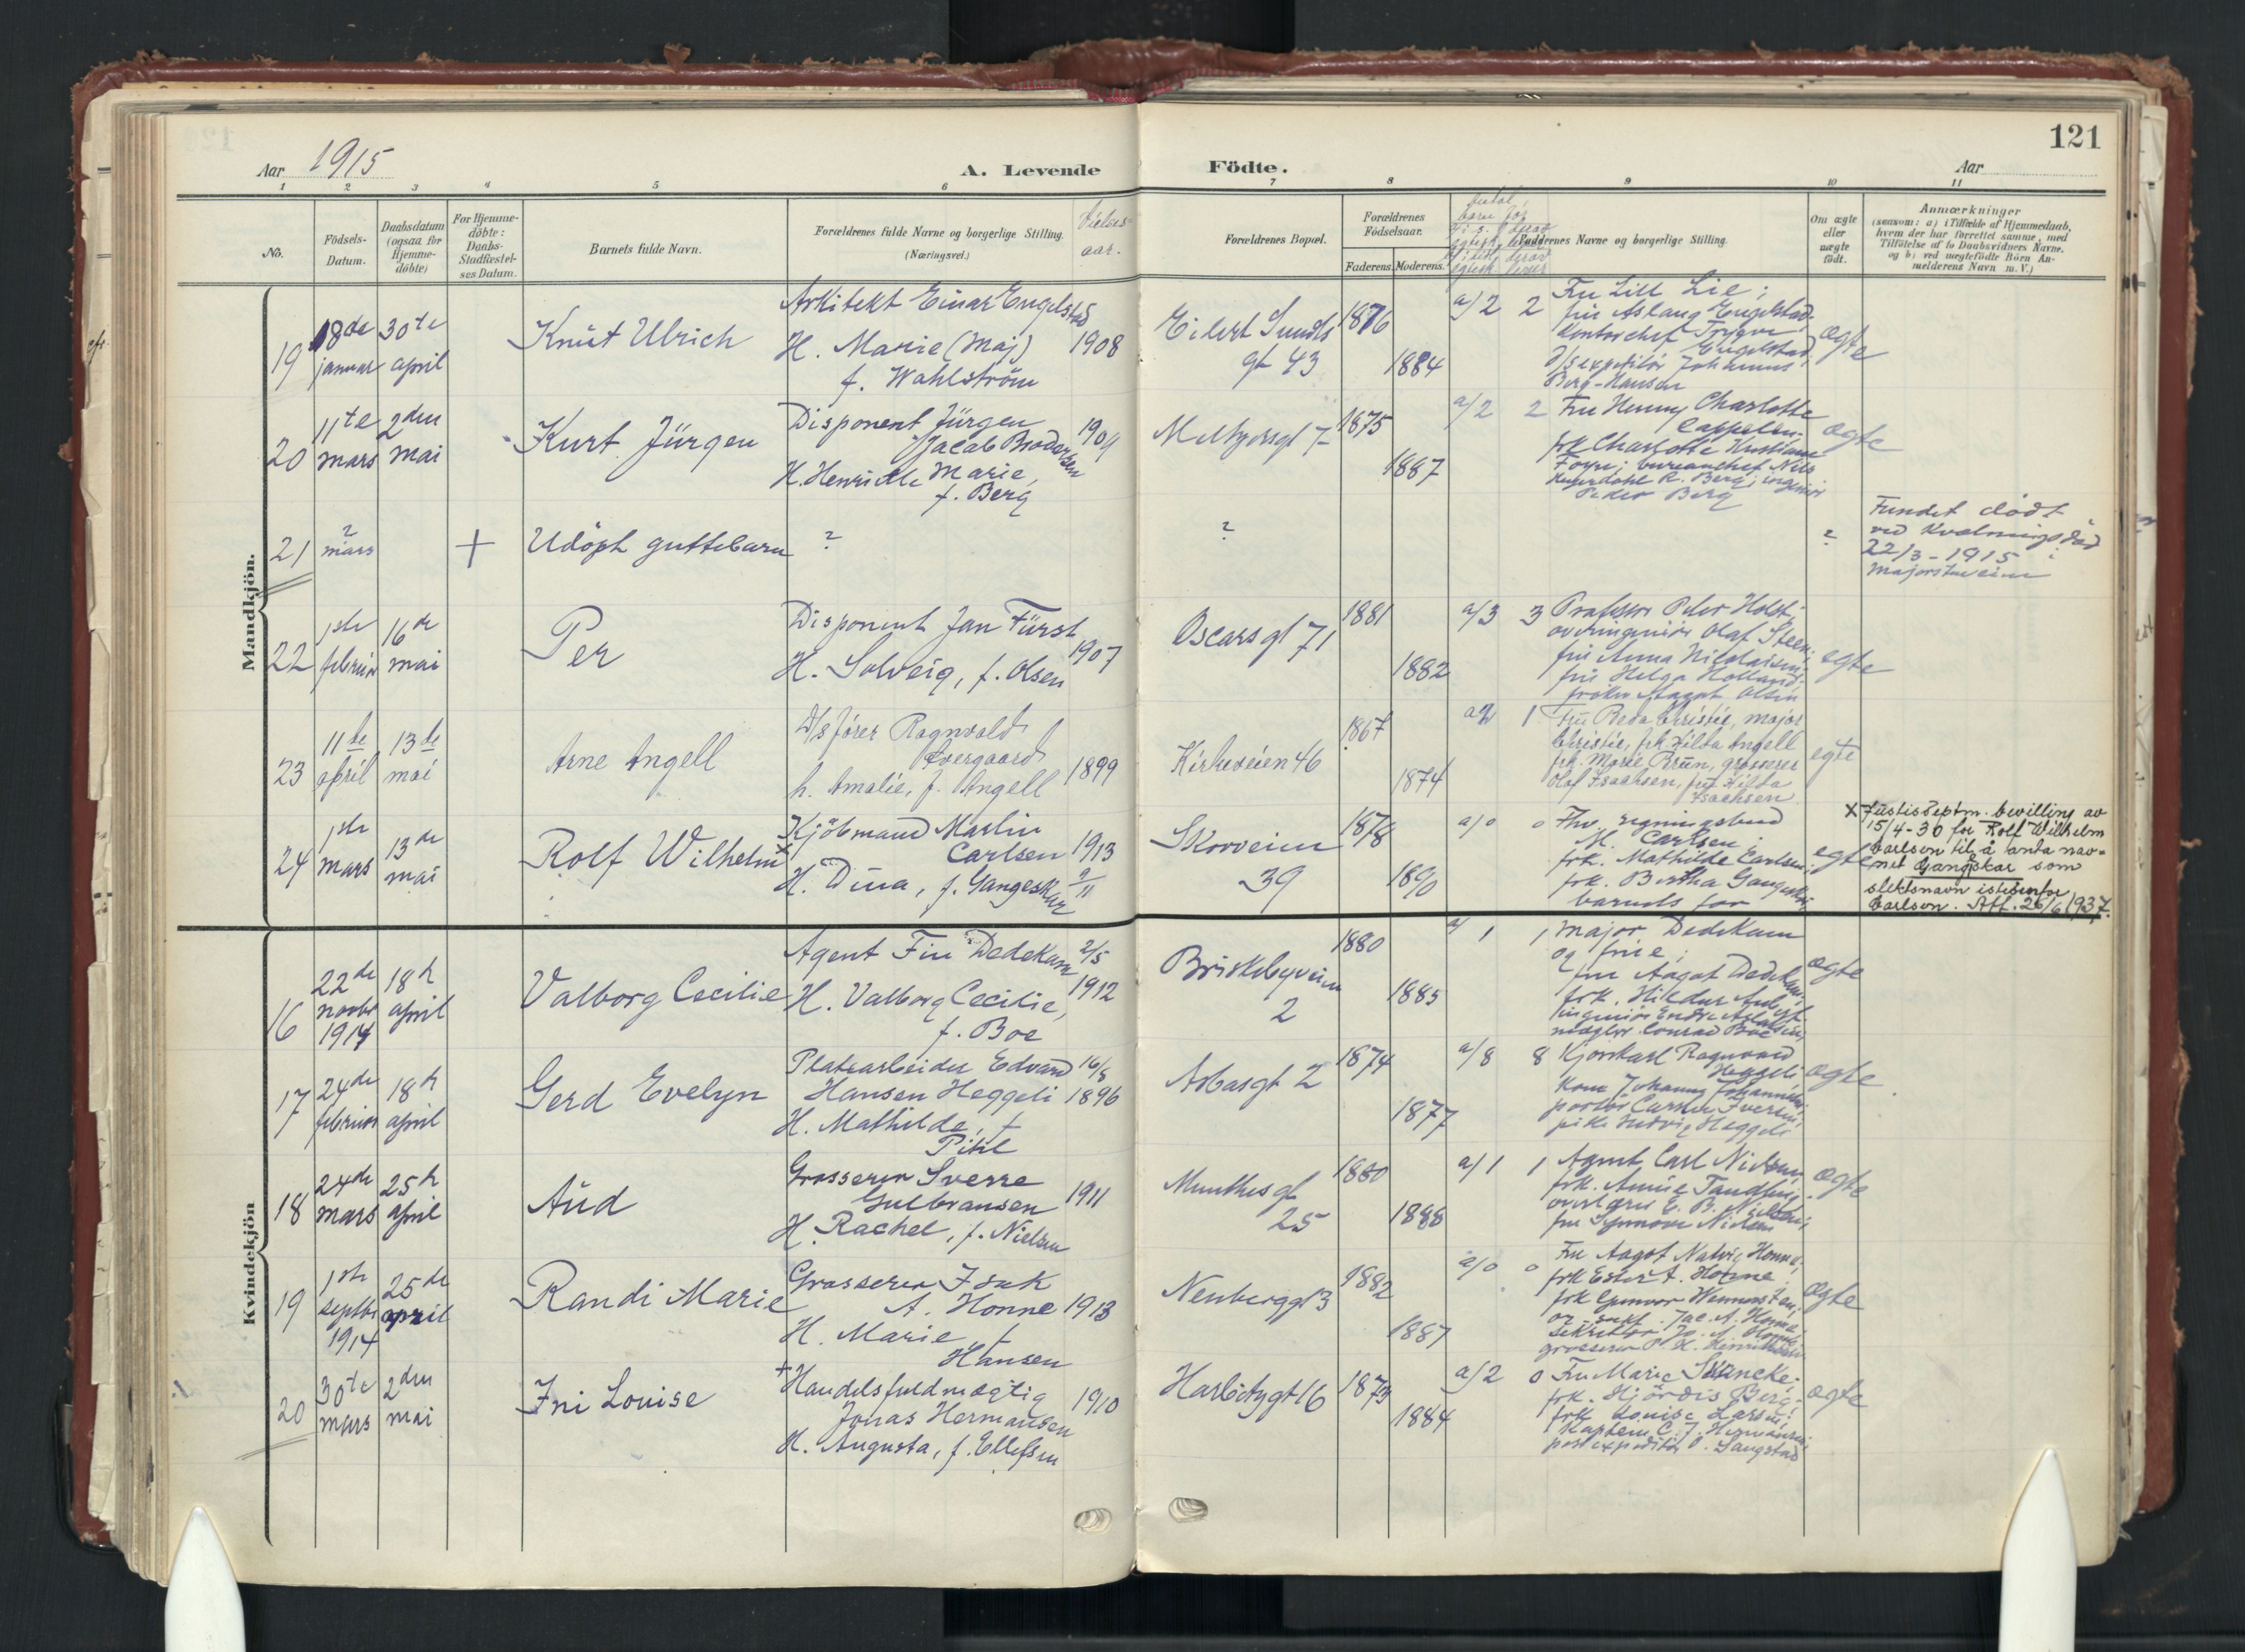 121
Aar 1915
A. Levende
Födte.
Aar
1 2 3 4 5 6 7 8 9 10 11
No.
Födsels-
Datum.
Daabsdatum
(ogsaa for
Hjemme-
döbte)
For Hjemme-
döbte:
Daabs-
Stadfæstel-
ses Datum.
Barnets fulde Navn.
Forældrenes fulde Navne og borgerlige Stilling.
(Næringsvei.)
Vielses-
aar.
Forældrenes Bopæl.
Forældrenes
Födselsaar.
Faderens.
Moderens.
Faddernes Navne og borgerlige Stilling.
Om ægte
eller
uægte
født.
Anmærkninger
(saasom: a) i Tilfælde af Hjemmedaab,
hvem der har forrettet samme, med
Tilföielse af to Daabsvidners Navne.
og b) ved uægtefödte Börn An-
melderens Navn m. V.)
Mandkjön.
19
18de
januar
30te
april
Knut Ulrich
Arkitekt Einar Engelstad
H. Marie (Maj)
f. Wahlström
1908
Eilert Sundts
gt 43
1876
1884
a/2 2
Fru Lill Lie;
fru Aslaug Engelstad;
kontorchef Trygve
Engelstad;
d/sexpeditör Johannes
Berg-Hansen
ægte
20
11te
mars
2den
mai
Kurt Jürgen
Disponent Jürgen
Jacob Brodersen
H. Henriette Marie,
f. Berg
1904
Meltzersgt 7
1875
1887
a/2 2
Fru Henny Charlotte
Cappelen;
frk Charlotte Kristiane
Foyn; bureauchef Nils
R. Berg; ingeniör
Peder Berg
ægte
21
?
mars
+
Udöpt guttebarn
?
?
?
Fundet dödt
ved Kvælningsdöd
22/3-1915 i
Majorstuveien
22
1ste
februar
16de
mai
Per
Disponent Jan Fürst
H. Solveig, f. Olsen
1907
Oscarsgt 71
1881
1882
a/3 3
Professor Peter Holst;
overingeniör Olaf Steen;
fru Anna Nicolaisen;
fru Helga Holland;
fröken Aagot Olsen
egte
23
11te
april
13de
mai
Arne Angell
D/sförer Ragnvald
Overgaard
h. Amalie, f. Angell
1899
Kirkeveien 46
1867
1874
a/2 1
Fru Beda Christie, major
Christie, frk. Hilda Angell
frk. Marie Brun, grosserer
Olaf Isachsen, fru Hilda
Isachsen.
egte
24
1ste
mars
13de
mai
Rolf Wilhelm x
Kjöbmand Martin
Carlsen
H. Dina, f. Gangeskar
1913
9/11
Skovveien
39
1878
1890
a/0 0
Fhv. regningsbud
M. Carlsen
frk. Mathilde Carlsen;
frk. Bertha Gangeskar;
barnets far
egte
x Justisdeptm. bevilling av
15/4-30 for Rolf Wilhelm
Carlsen til å anta nav-
net Gangskar som
slektsnavn istedenfor
Carlsen. Att. 26/6 1937.
Kvindekjön
16
22de
novbr
1914
18de
april
Valborg Cecilie
Agent Finn Dedekam
H. Valborg Cecilie,
f. Boe
2/5
1912
Briskebyveien
2
1880
1885
a/1 1
Major Dedekam
og frue;
fru Aagot Dedekam;
ægte
17
24de
februar
18de
april
Gerd Evelyn
Platearbeider Edvard
Hansen Heggeli
H. Mathilde, f.
Pihl
16/8
1896
Asbasgt 2
1874
1877
a/8 8
Kjørekarl Ragnvald
Heggeli
ægte
18
24de
mars
25de
april
Aud
Grosserer Sverre
Gulbransen
H. Rachel, f. Nielsen
1911
Munthesgt
25
1880
1888
a/1 1
Agent Carl Nielsen;
frk. Annie Tandberg;
overlærer E. B. Nielsen;
fru Synnøve Nielsen
ægte
19
1ste
septbr
1914
25de
april
Randi Marie
Grosserer Isak
A. Honne
H. Marie, f.
Hansen
1913
Neuberggt 3
1882
1887
a/0 0
Fru Aagot Natvig Honne;
frk Ester A. Honne;
ægte
20
30te
mars
2den
mai
Ini Louise
+ Handelsfuldmægtig
Jonas Hermansen
H. Augusta, f. Ellefsen
1910
Harbitzgt 16
1873
1884
a/2 0
Fru Marie Svancke;
frk. Hjördis Berg;
frk Louise Larsen;
Kaptein C. J. Hermansen;
postexpeditör P. Langstad
ægte